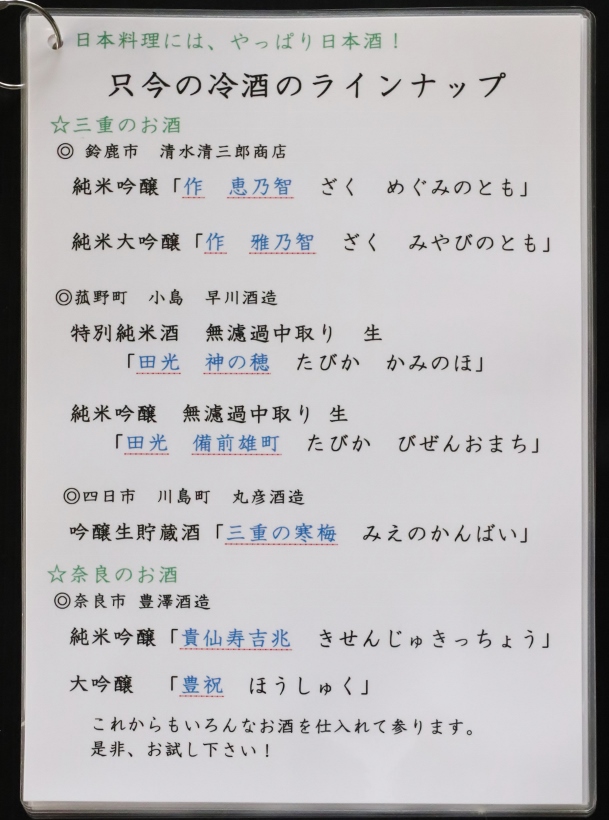 日本料理には、やっぱり日本酒！
只今の冷酒のラインナップ
☆三重のお酒
◎ 鈴鹿市　清水清三郎商店
純米吟醸「作　恵乃智　ざく　めぐみのとも」
純米大吟醸「作　雅乃智　ざく　みやびのとも」
◎菰野町　小島　早川酒造
特別純米酒　無濾過中取り　生
「田光　神の穂　たびか　かみのほ」
純米吟醸　無濾過中取り　生
「田光　備前雄町　たびか　びぜんおまち」
◎四日市　川島町　丸彦酒造
吟醸生貯蔵酒「三重の寒梅　みえのかんばい」
☆奈良のお酒
◎奈良市 豊澤酒造
純米吟醸「貴仙寿吉兆　きせんじゅきっちょう」
大吟醸　「豊祝　ほうしゅく」
これからもいろんなお酒を仕入れて参ります。
是非、お試し下さい！